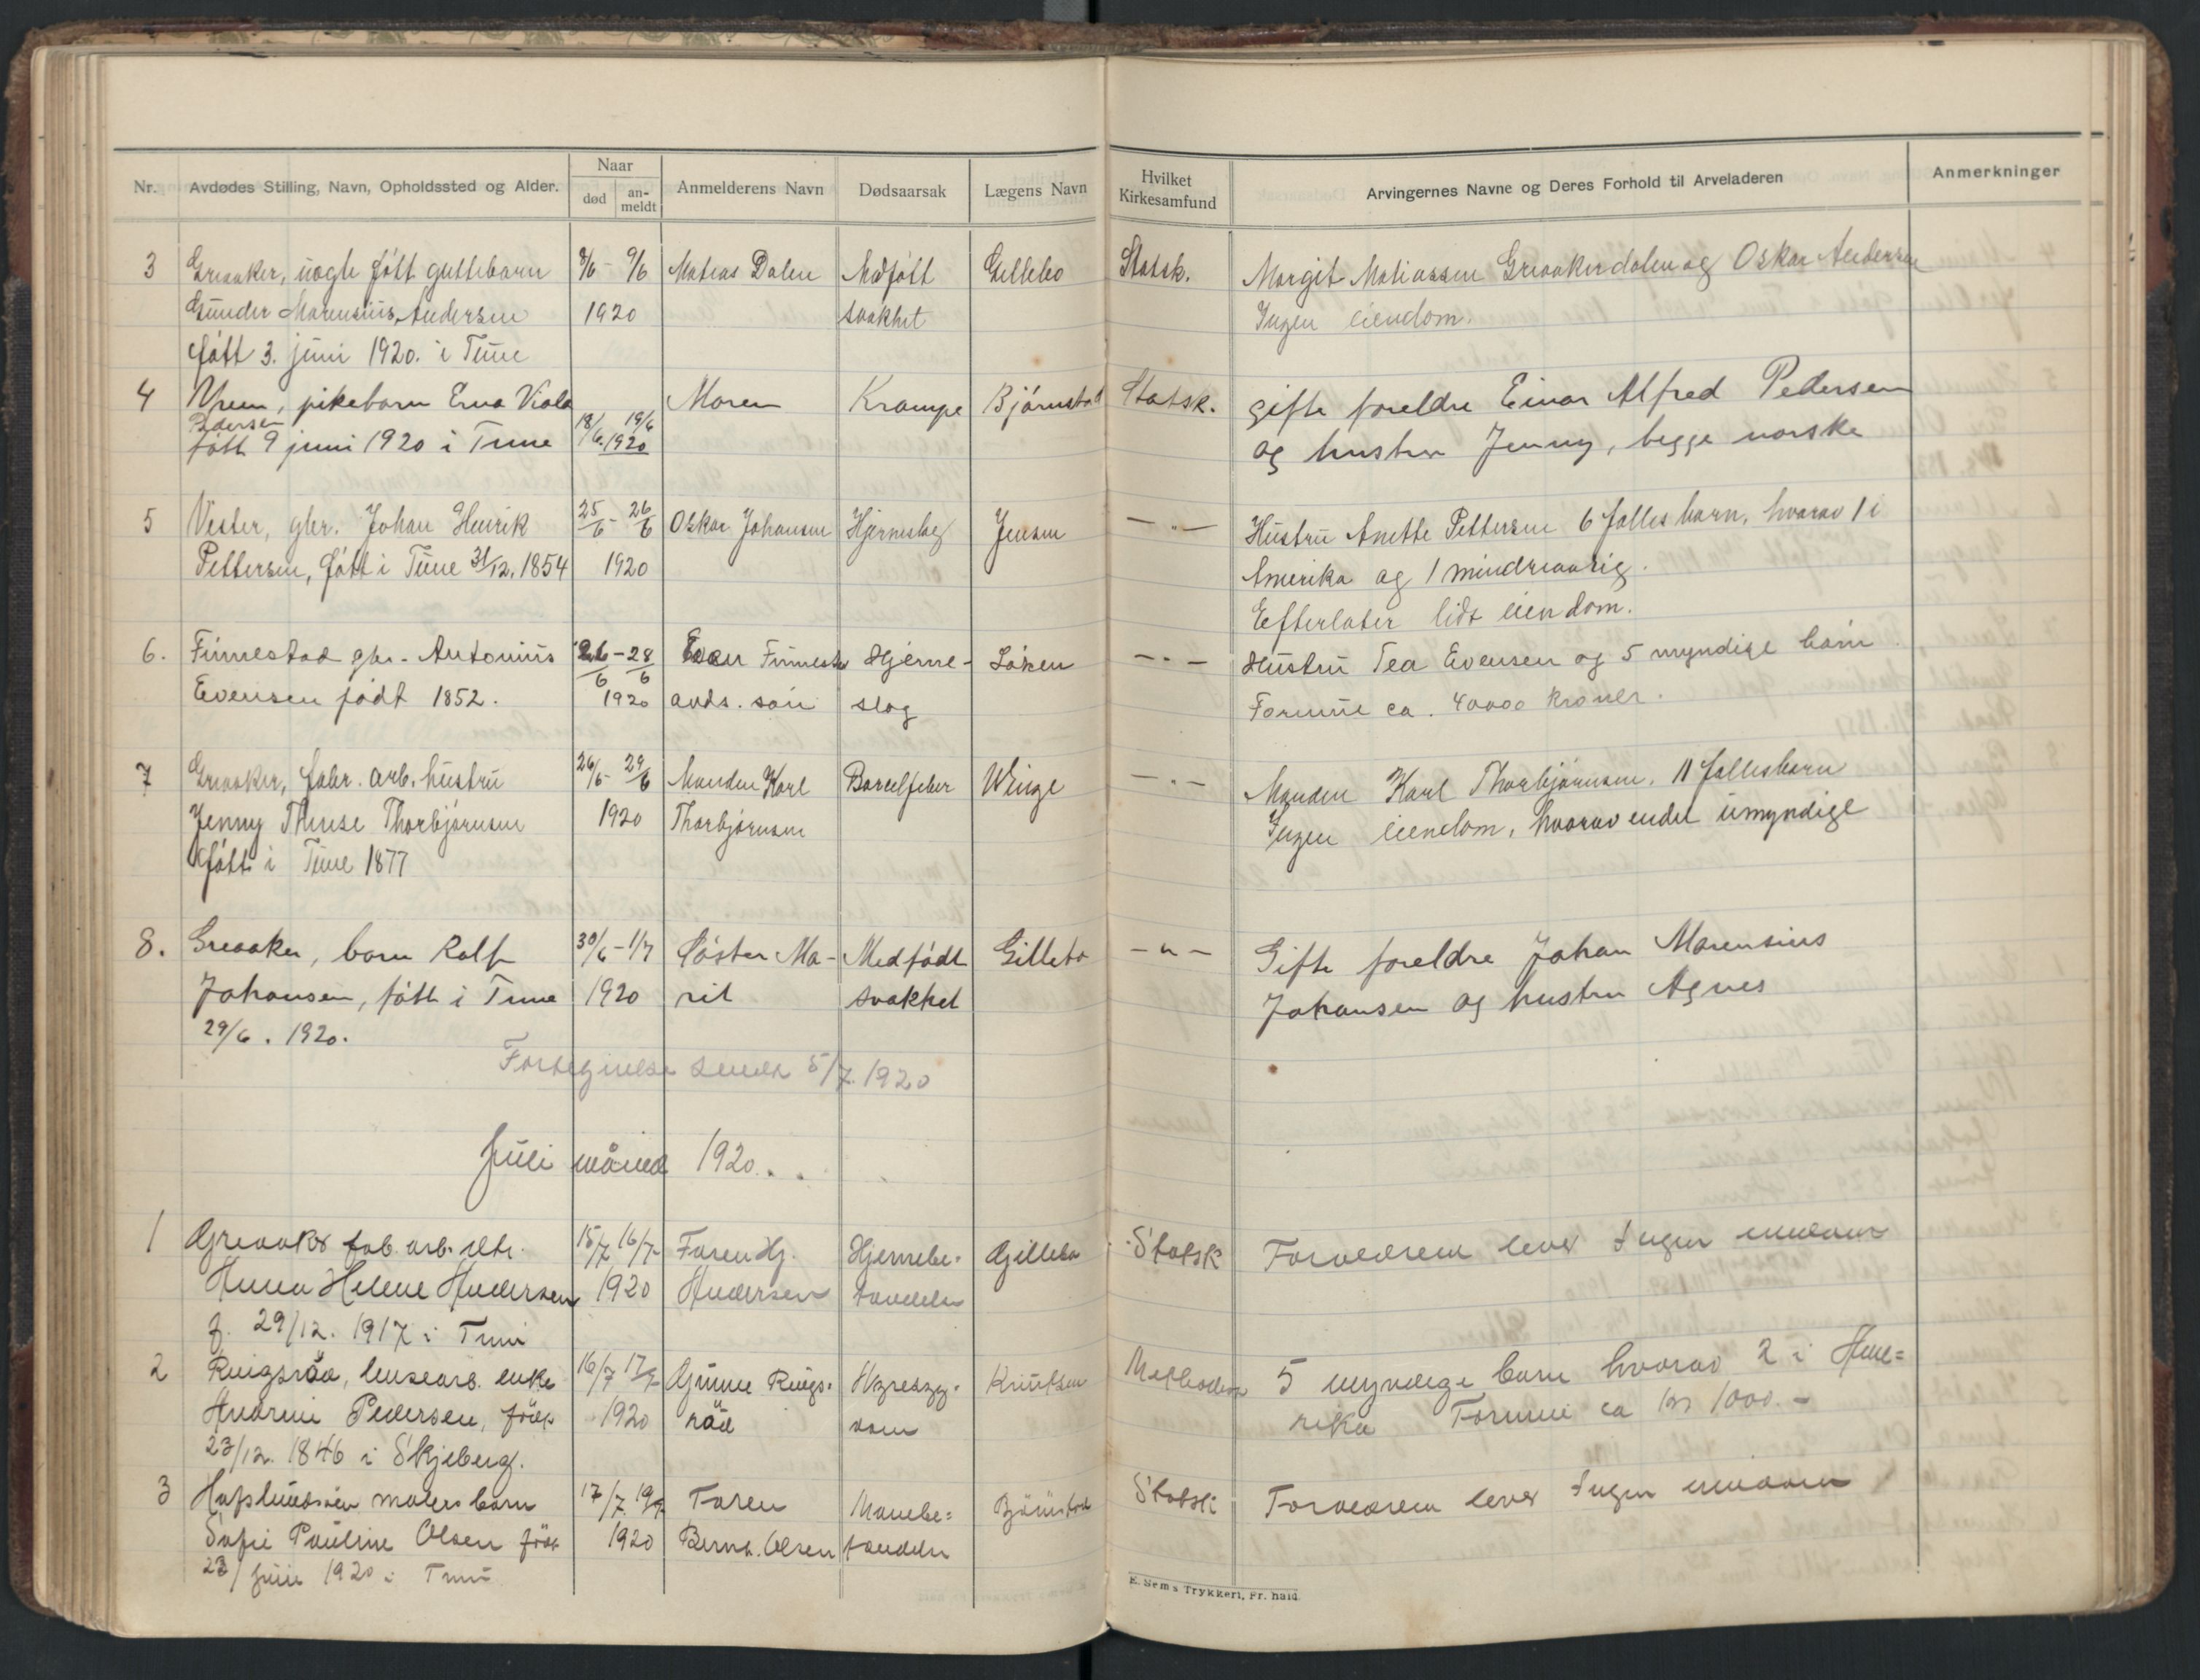 Nr.
Avdødes Stilling, Navn, Opholdssted og Alder.
Naar
død
an-
meldt
Anmelderens Navn
Dødsaarsak
Lægens Navn
Hvilket
Kirkesamfund
Arvingernes Navne og Deres Forhold til Arveladeren
Anmerkninger
3 Greaaker, uegte født guttebarn 8/6 - 9/6 Mateas Dalen Medfött Gillebo Statsk. Margit Matiassen Greaakerdalen og Oskar Andersen
Gunder Marensius Andersen 1920 svakhet Ingen eiendom.
født 3. juni 1920. i Tune
4 Yven, pikebarn Erna Viola Moren Krampe Björnstad Statsk. gifte foreldre Einar Alfred Pedersen
Pedersen 18/6. 19/6
født 9 juni 1920 i Tune 1920 og hustru Jenny, begge norske
5 Vester, gbr. Johan Henrik 25/6 - 26/6 Oskar Johansen Hjerneslag Jensen — " — Hustru Anette Pettersen 6 fallesbarn, hvorav 1 i
Pettersen, født i Tune 31/12. 1854 1920 Amerika og 1 mindreaarig.
Efterlater lidt eiendom.
6. Finnestad gbr. Antonius 26/6 - 28/6 Even Finnestad Hjerne- Löken — " — Hustru Tea Evensen og 5 myndige barn
Evensen födt 1852. 1920 avds. sön slag Formue ca. 40000 kroner.
7 Greaaker, fabr. arb. hustru 26/6 - 29/6 Manden Karl Barselfeber Winge — " — Manden Karl Thorbjörnsen, 11 fallesbarn
Jenny Thrise Thorbjörnsen 1920 Thorbjörnsen Ingen eiendom, hvorav endel umyndige
født i Tune 1877
8. Greaaker, barn Rolf 30/6 - 1/7 Söster Ma- Medfödt Gillebo — " — Gifte foreldre Johan Marensius
Johansen, født i Tune 1920 rit svakhet Johansen og hustru Agnes
29/6. 1920.
Fortegnelse sendt 5/7 1920
Juli måned 1920.
1 Greaaker fab. arb. dtr. 15/7 16/7 Faren Hj. Hjernebe- Gillebo Statsk Forældren lever Ingen eiendom
Anna Helene Andersen 1920 Andersen tændelse
f. 29/12. 1917 i Tune
2 Ringsröd, lensearb. enke 16/7 17/7 Gunne Rings- Hjertesyg- Knutsen 5 myndige barn hvorav 2 i Ame-
Andrine Pedersen, födt 1920 röd dom rika Formue ca kr 1000.-
23/12. 1846 i Skjeberg.
3 malers barn 17/7. 19/7 Faren Mavebe- Björnstad Statsk Forældren lever Ingen eiendom
Sofie Pauline Olsen födt 1920 Bernt. Olsen tændelse
23/ juni 1920 i Tune
E. Sem's Trykkeri, Fr.hald.